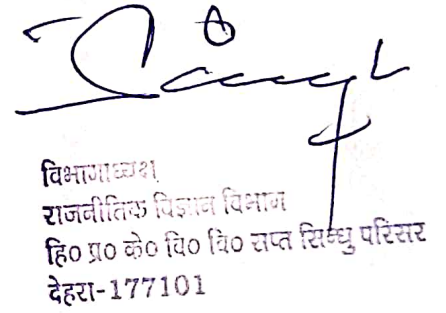 विभागाध्यक्ष
राजनीतिक विज्ञान विभाग
हि० प्र० के० वि० वि० सप्त सिन्धु परिसर
देहरा-177101